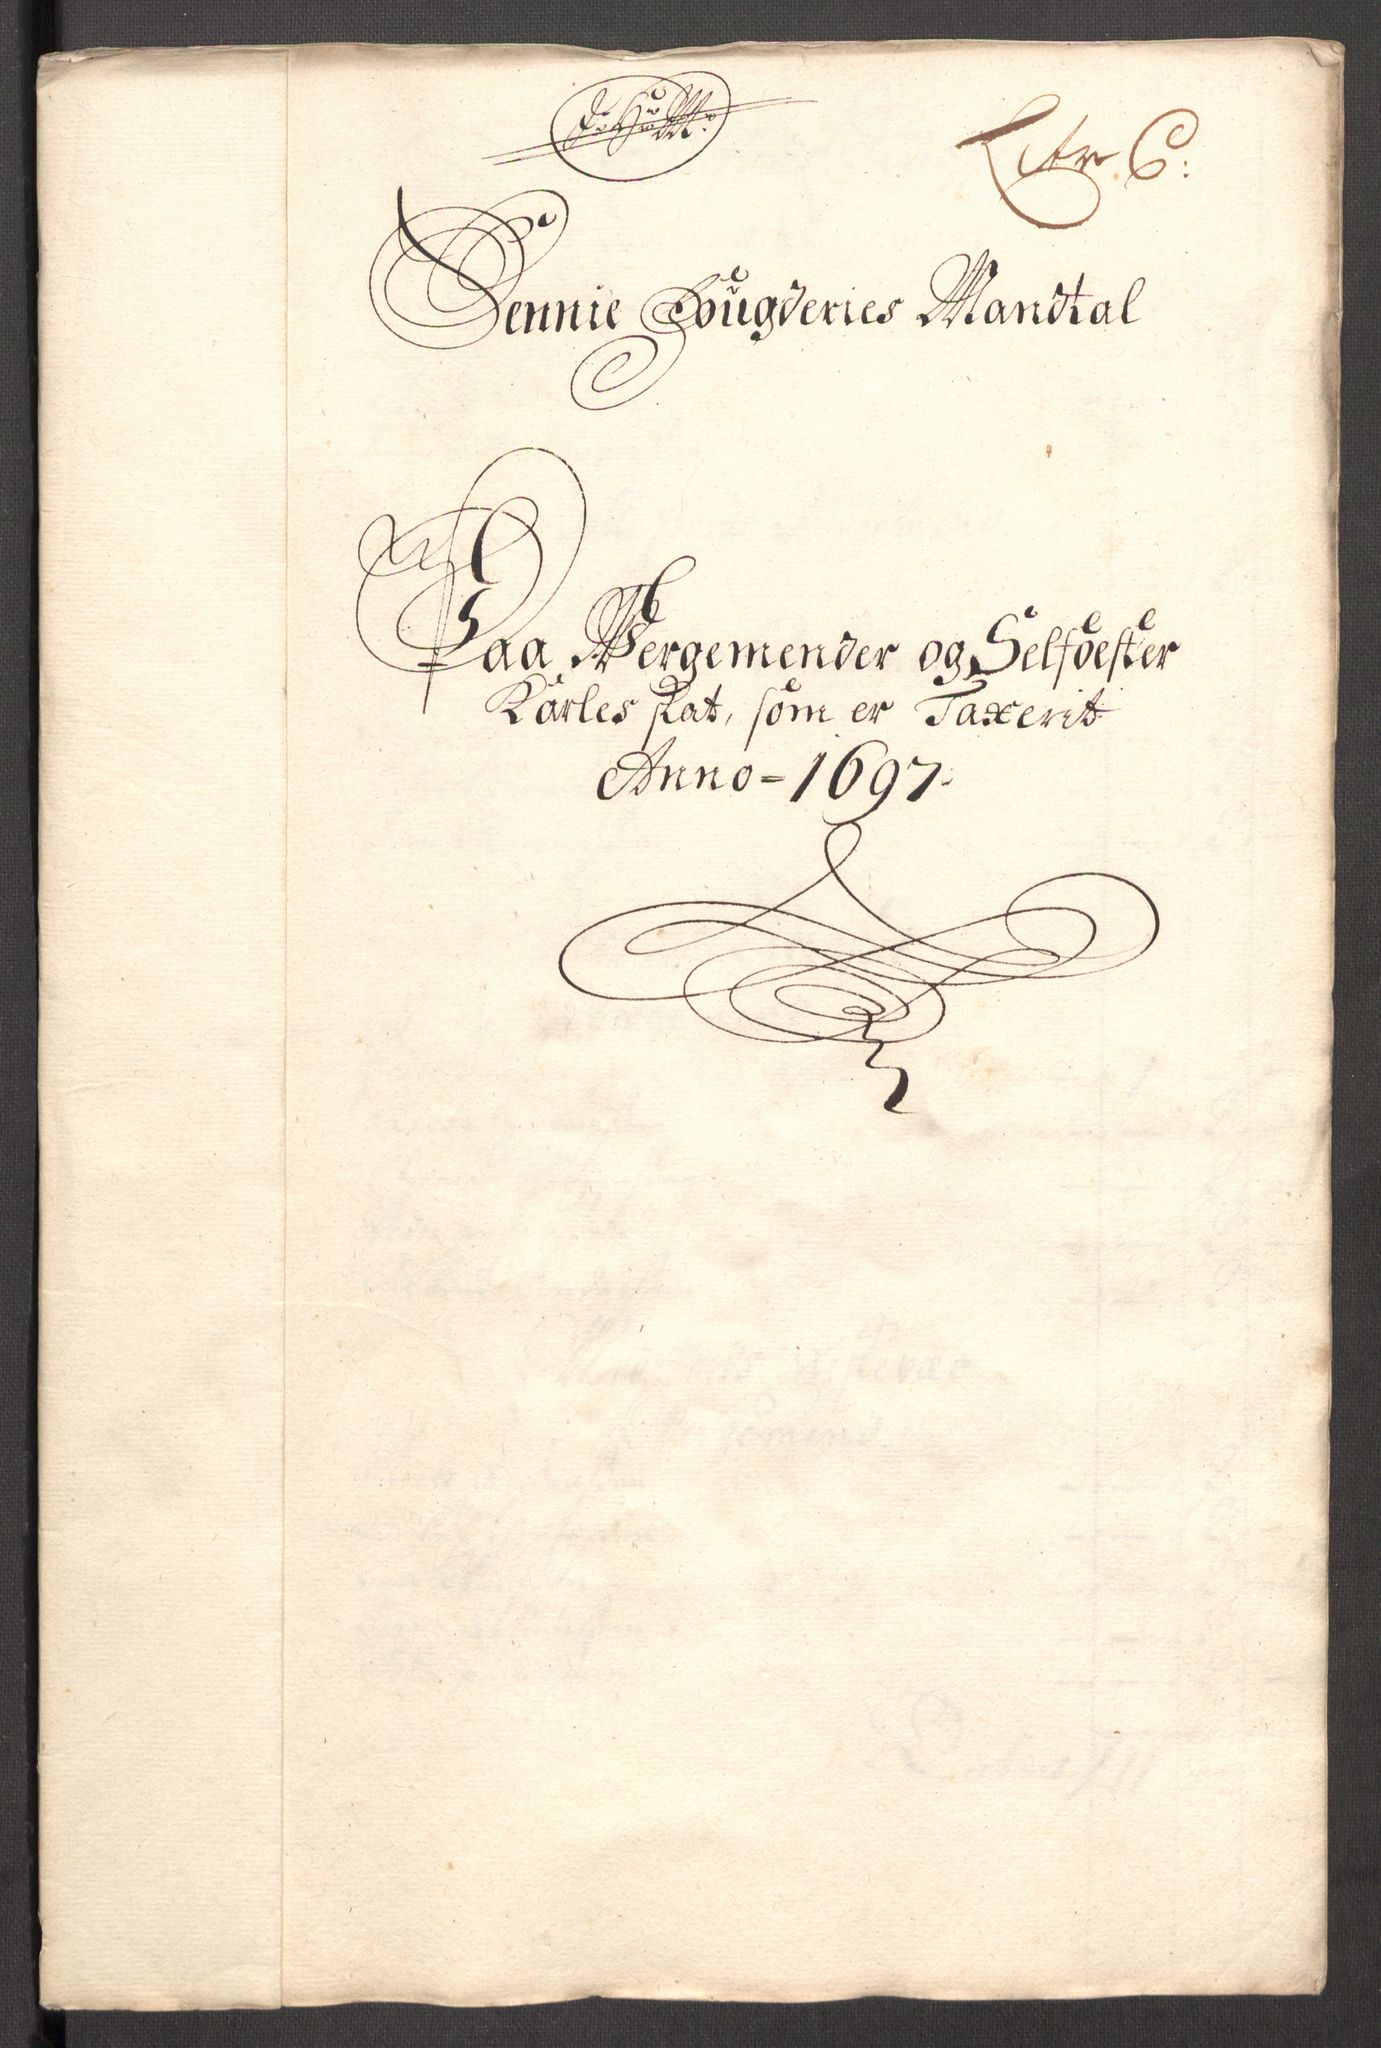 Litr C:
Sennie Fougderies Mandtal
Paa Wergemender og Selføester
Karles skat, som er Taxerit
Anno = 1697.